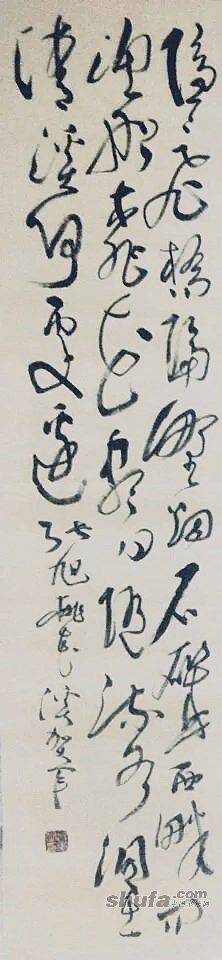 隱〻飛橋隔野烟石磯西畔問
漁船桃花盡日隨流水洞在
清溪何處邊 張旭桃花溪
shufa.com